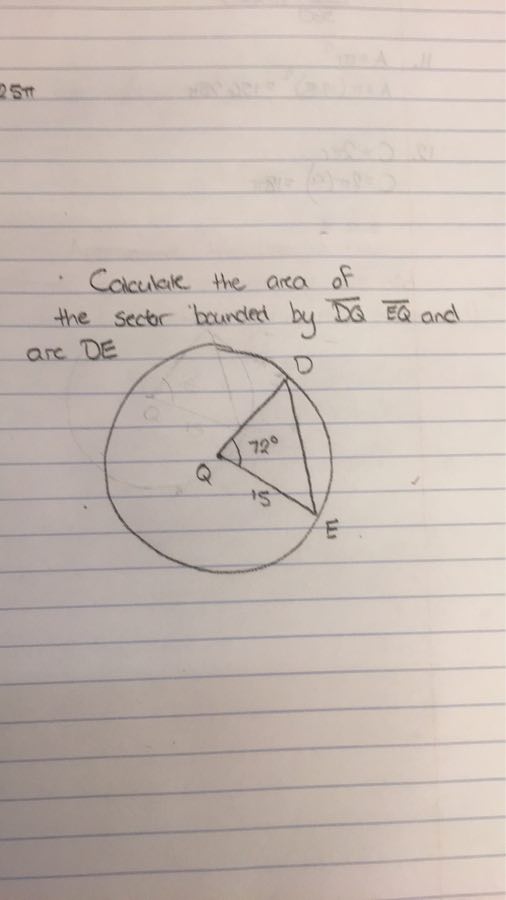 25π
· Calculate the area of
the sector bounded by DQ EQ and
arc DE
D
72°
Q
15
E